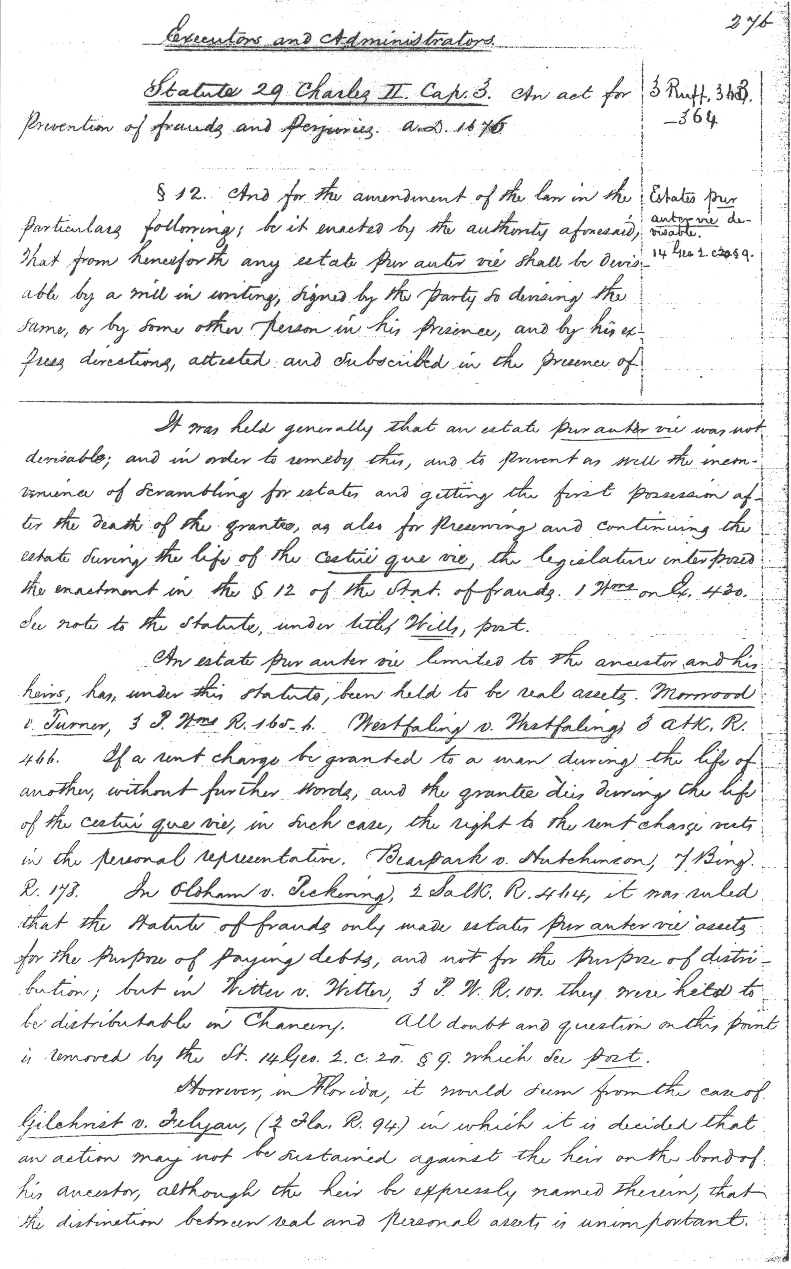 276
Executors and Administrators.
Statute 29 Charles II. Cap. 3. An act for
Prevention of frauds and Perjuries. A.D. 1676
3 Ruff.
_364
§ 12. And for the amendment of the law in the
particulars following; be it enacted by the authority aforesaid,
that from henceforth any estate pur auter vie shall be devis-
able by a will in writing, signed by the party so devising the
same, or by some other person in his presence, and by his ex-
press directions, attested and subscribed in the presence of
Estates pur
auter vie de-
visable.
14 Geo 2. c 20 § 9.
It was held generally that an estate pur auter vie was not
devisable; and in order to remedy this, and to prevent as well the incon-
venience of scrambling for estates and getting the first possession af-
ter the death of the grantee, as also for preserving and continuing the
estate during the life of the cestui que vie, the legislature interposed
the enactment in the § 12 of the Stat. of frauds. 1 Wms on Ex. 430.
See note to the statute, under title, Wills, post.
An estate pur auter vie limited to the ancestor and his
heirs, has, under this statute, been held to be real assets.
v. Turner, 3 P. Wms R. 165-6. Westfaling v. Westfaling, 3 Atk. R.
466. If a rent charge be granted to a man during the life of
another, without further words, and the grantee dies during the life
of the cestui que vie, in such case, the right to the rent charge vests
in the personal representative. Bearpark v. Hutchinson, 7 Bing.
R. 178. In Oldham v. Pickering, 2 Salk. R. 464, it was ruled
that the statute of frauds only made estates pur auter vie assets
for the purpose of paying debts, and not for the purpose of distri-
bution; but in Witter v. Witter, 3 P. W. R. 101. they were held to
be distributable in Chancery. All doubt and question on this point
is removed by the St. 14 Geo. 2. c. 20. § 9. which see post.
However, in Florida, it would seem from the case of
Gilchrist v. Filyau, (2 Fla. R. 94.) in which it is decided that
an action may not be sustained against the heir on the bond of
his ancestor, although the heir be expressly named therein, that
the distinction between real and personal assets is unimportant.